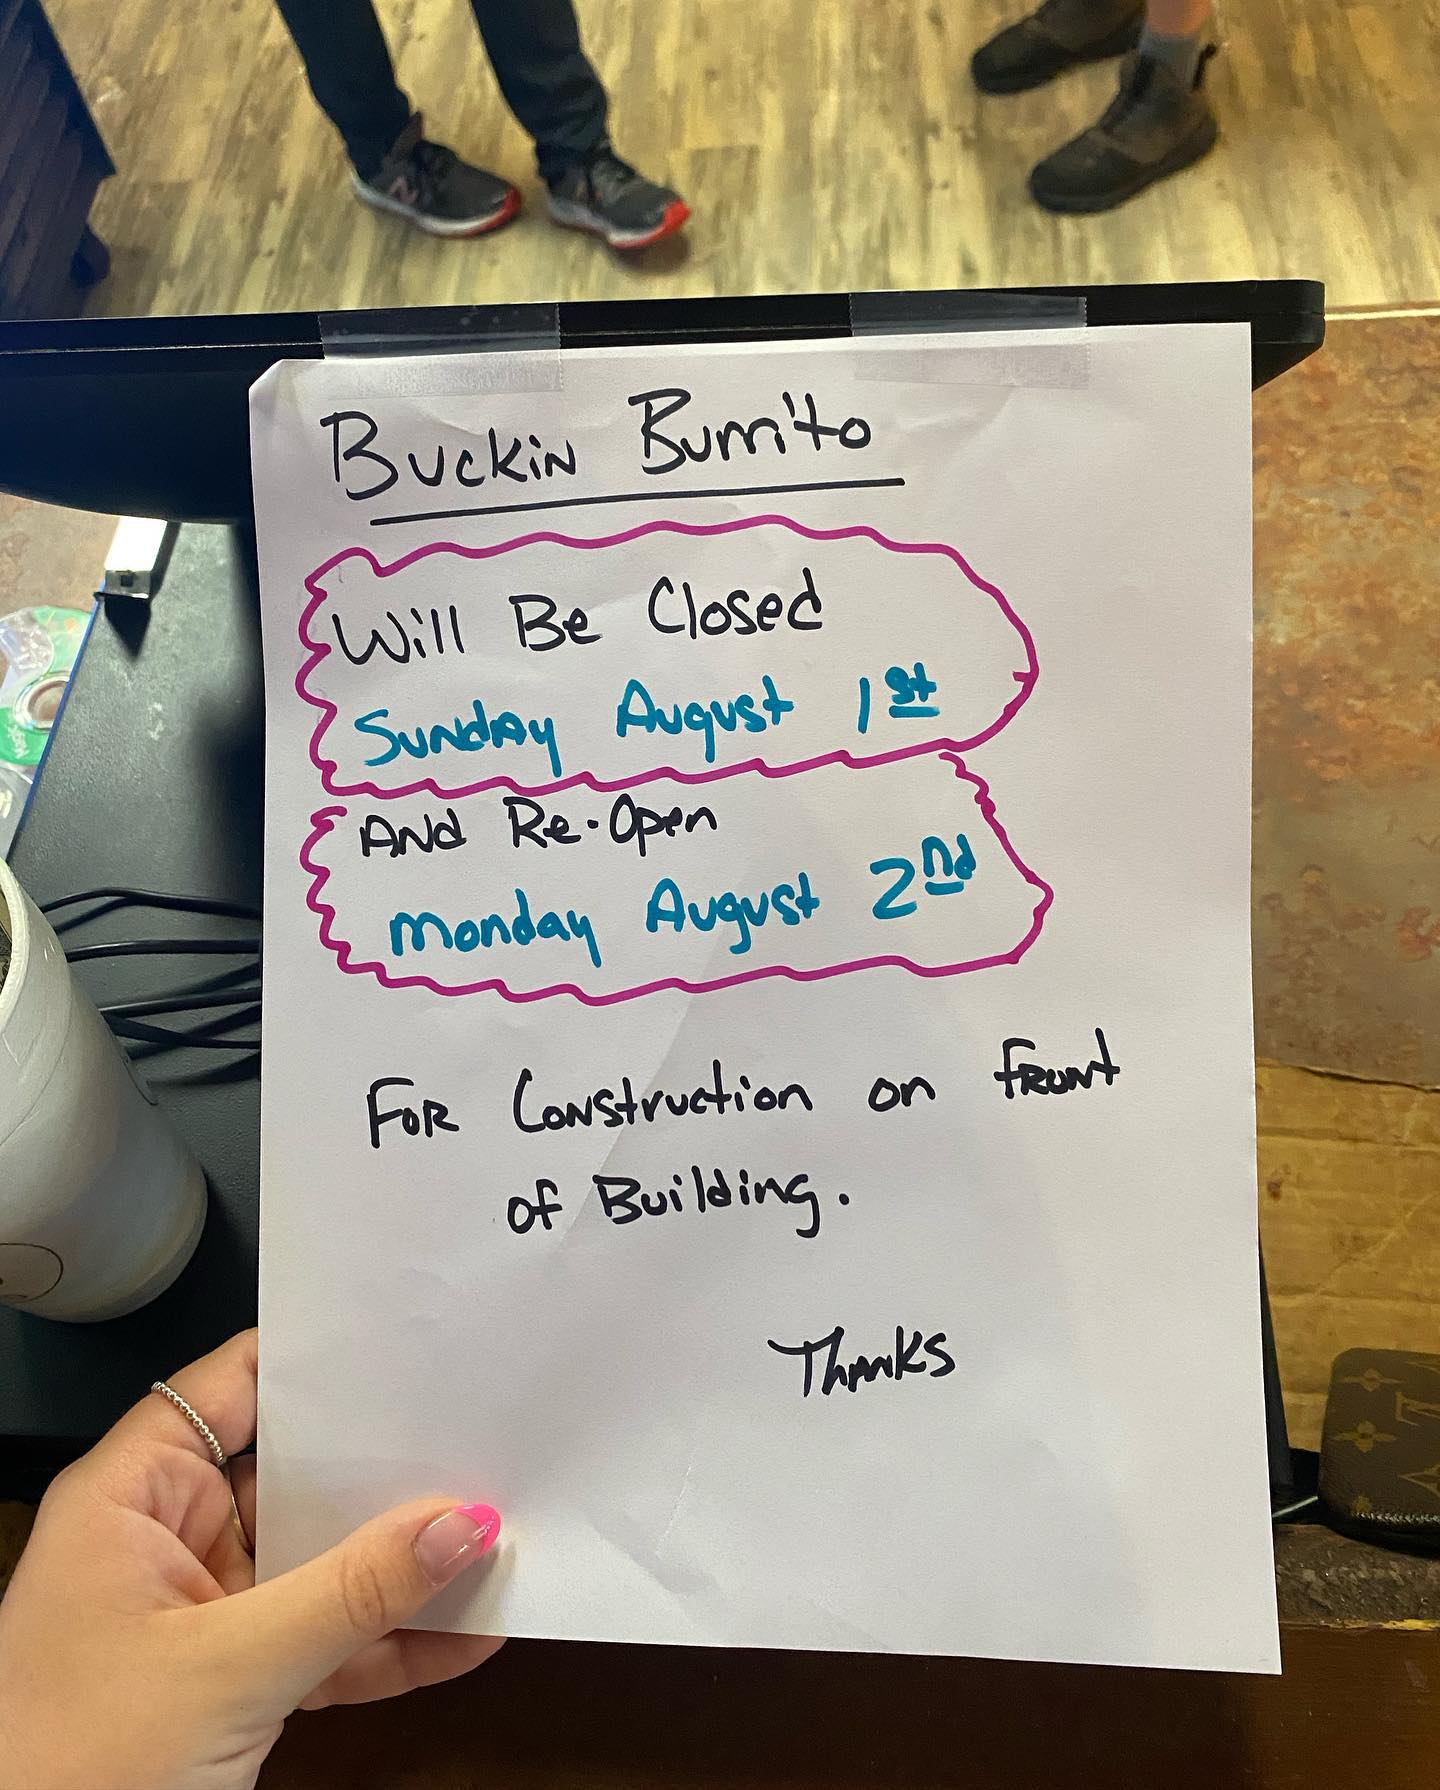 Buckin Burrito
Will Be Closed
Sunday August 1st
And Re-Open
Monday August 2nd
For Construction on front
of Building.
Thanks